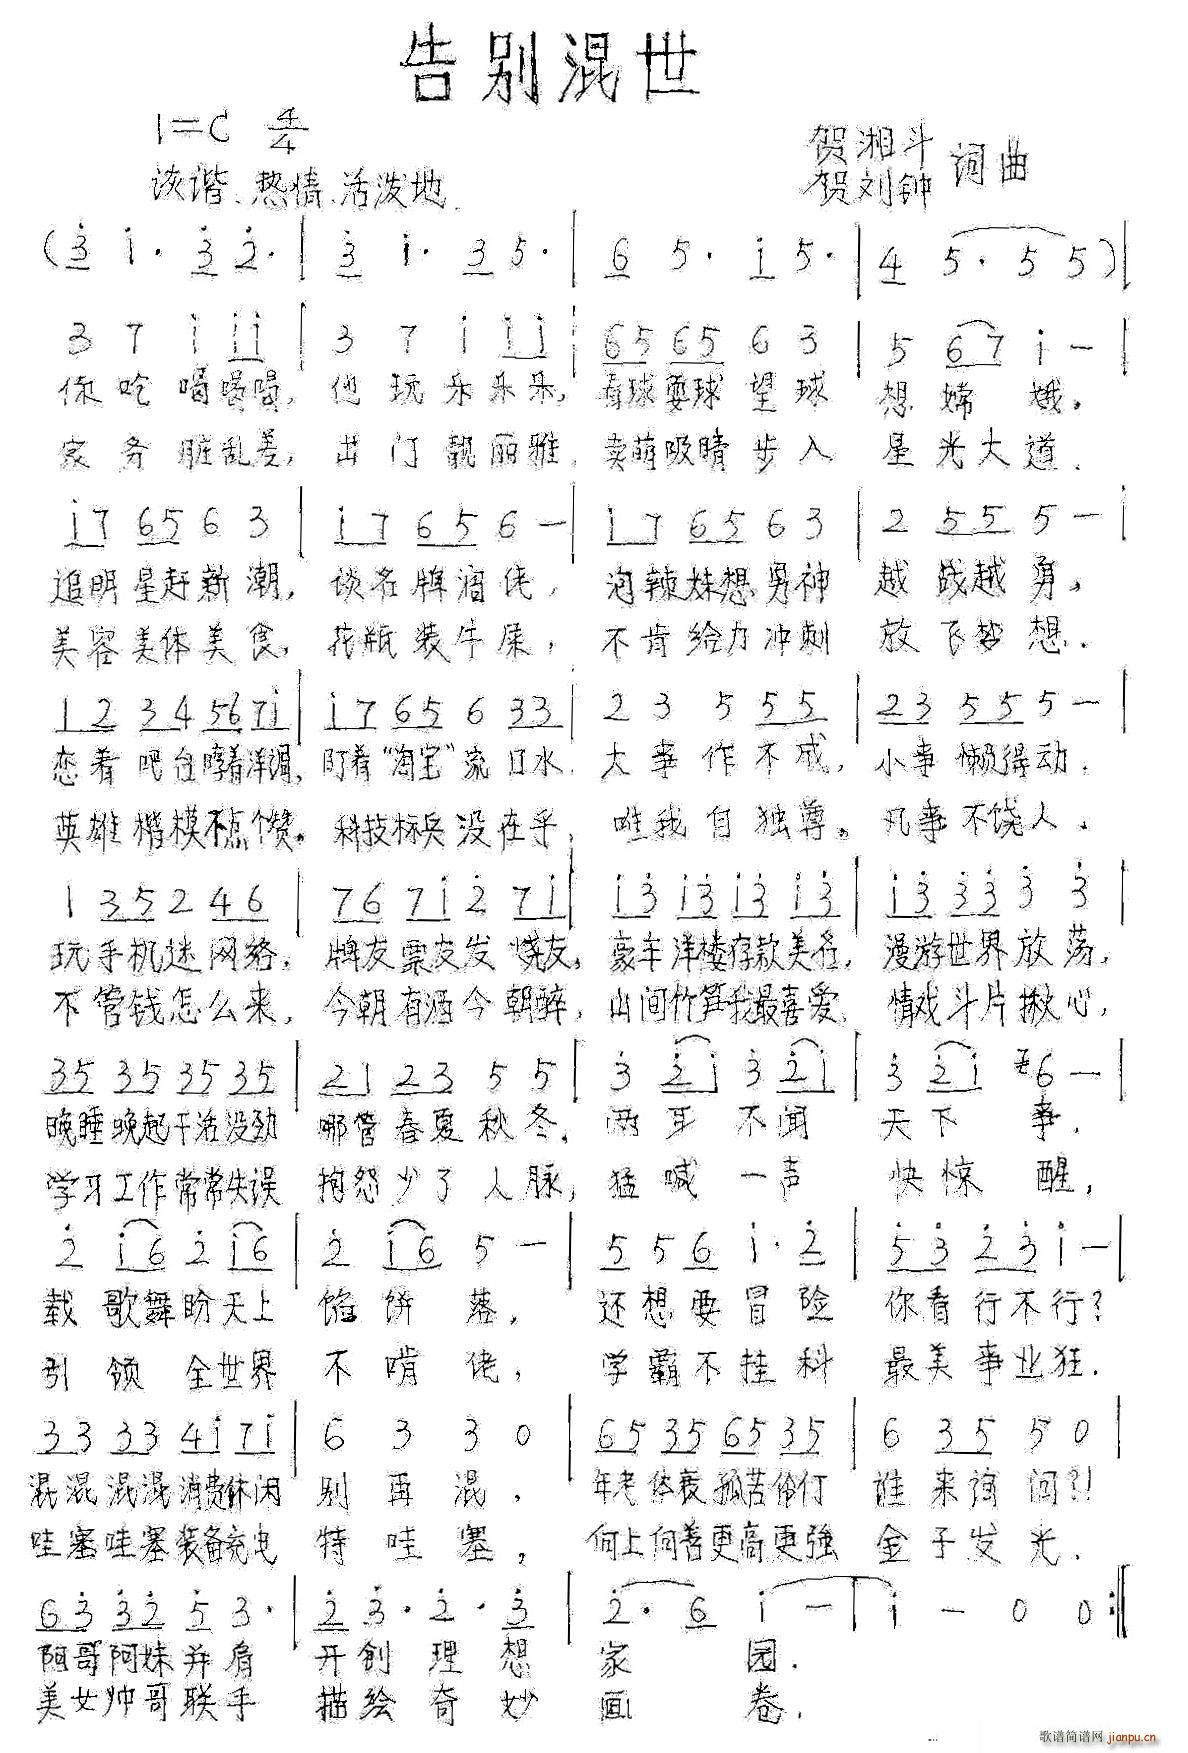 告别混世
1=C 4/4
贺湘斗
贺刘钟 词曲
诙谐、热情、活泼地
(3 i· 3 2·| 3 i· 3 5·| 6 5· i 5·| 4 5· 5 5)|
3 7 i i i| 3 7 i i i| 65 65 6 3| 5 67 i —|
你吃喝喝喝, 他玩乐乐乐, 看球耍球望球 想嫦娥。
家务脏乱差, 出门靓丽雅, 卖萌吸睛步入 星光大道.
i7 65 6 3| i7 65 6 —| i7 65 6 3| 2 55 5 —|
追明星赶新潮, 谈名牌酒佬, 泡辣妹想男神 越战越勇。
美容美体美食, 花瓶装牛屎, 不肯给力冲刺 放飞梦想.
12 34 56 7i| i7 65 6 33| 2 3 5 55| 23 55 5 —|
恋着吧台 洋酒, 盯着“淘宝”流口水. 大事作不成, 小事懒得动.
英雄楷模不点个赞。科技标兵没在乎, 唯我自独尊。凡事不饶人.
1 35 2 46| 76 7i 2 7i| i3 i3 i3 i3| i3 33 3 3|
玩手机迷网络, 牌友票友发烧友, 豪车洋楼存款美名, 漫游世界放荡,
不管钱怎么来, 今朝有酒今朝醉, 山间竹笋我最喜爱, 情戏斗片揪心,
35 35 35 35| 21 23 5 5| 3 2i 3 2i| 3 2i 76 —|
晚睡晚起干活没劲 哪管春夏秋冬. 两耳不闻 天下事.
学习工作常常失误 抱怨少了人脉, 猛喊一声 快惊醒,
2 i6 2 i6| 2 i6 5 —| 5 5 6 i· 2| 53 23 i —|
载歌舞盼天上 馅饼落, 还想要冒险 你看行不行?
引领全世界 不啃佬, 学霸不挂科 最美事业狂.
33 33 4i 7i| 6 3 3 0| 65 35 65 35| 6 35 5 0|
混混混混消费休闲 别再混, 年老体衰孤苦伶仃 谁来询问?!
哇塞哇塞装备充电 特哇塞, 向上向善更高更强 金子发光.
63 32 5 3·| 2 3· 2· 3| 2· 6 i —| i — 0 0:||
阿哥阿妹并肩 开创理想 家园.
美女帅哥联手 描绘奇妙 画卷.
歌谱简谱网 jianpu.cn